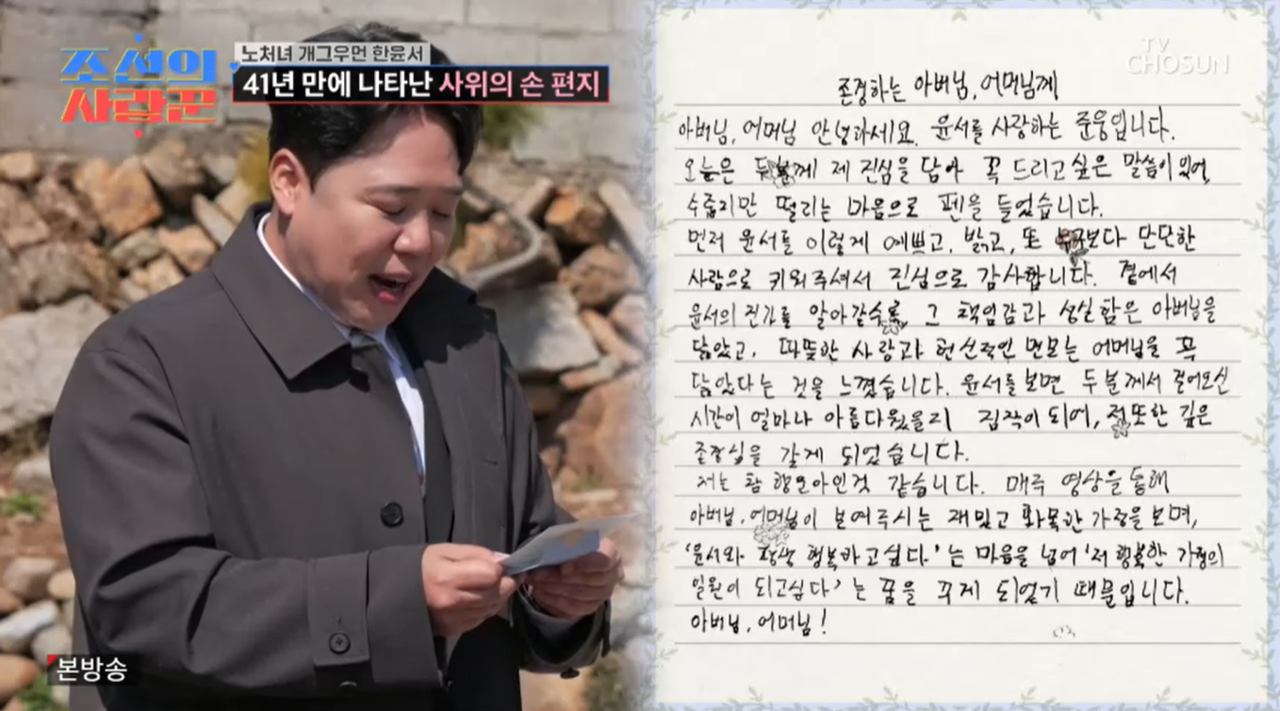 조선의
사랑꾼
노처녀 개그우먼 한윤서
41년 만에 나타난 사위의 손 편지
TV
CHOSUN
존경하는 아버님, 어머님께
아버님, 어머님 안녕하세요. 윤서를 사랑하는 준웅입니다.
오늘은 두분께 제 진심을 담아 꼭 드리고 싶은 말씀이 있어,
수줍지만 떨리는 마음으로 펜을 들었습니다.
먼저 윤서를 이렇게 예쁘고, 밝고, 또 누구보다 단단한
사람으로 키워주셔서 진심으로 감사합니다. 곁에서
윤서의 진가를 알아갈수록 그 책임감과 성실함은 아버님을
닮았고, 따뜻한 사랑과 헌신적인 면모는 어머님을 꼭
닮았다는 것을 느꼈습니다. 윤서를 보면 두분께서 걸어오신
시간이 얼마나 아름다웠을지 짐작이 되어, 저 또한 깊은
존경심을 갖게 되었습니다.
저는 참 행운아인것 같습니다. 매주 영상을 통해
아버님, 어머님이 보여주시는 재밌고 화목한 가정을 보며,
'윤서와 평생 행복하고싶다.'는 마음을 넘어 '저 행복한 가정의
일원이 되고싶다'는 꿈을 꾸게 되었기 때문입니다.
아버님, 어머님!
본방송